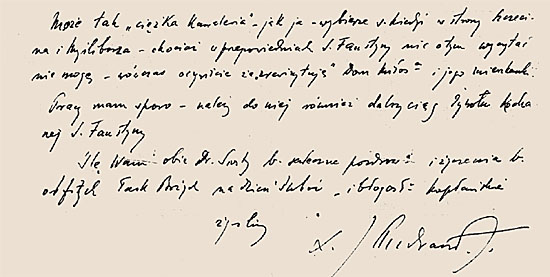 Może tak „ciężka kawaleria" – jak ja – wybierze s. kiedyś w strony Szczeci
na i Myśliborza – chociaż w przepowiedniach S. Faustyny nic o tym wyczytać
nie mogę – wówczas oczywiście „zrewizytuję" Dom i jego mieszkanki.
Pracy mam sporo – należy do niej również dalszy ciąg Żywotu
nej S. Faustyny
Ślę Wam obie Dr. Siostry b. serdeczne i życzenia b.
obfitych Łask Bożych na dzień i błogosł kapłańskie
życzliwy
X. J.